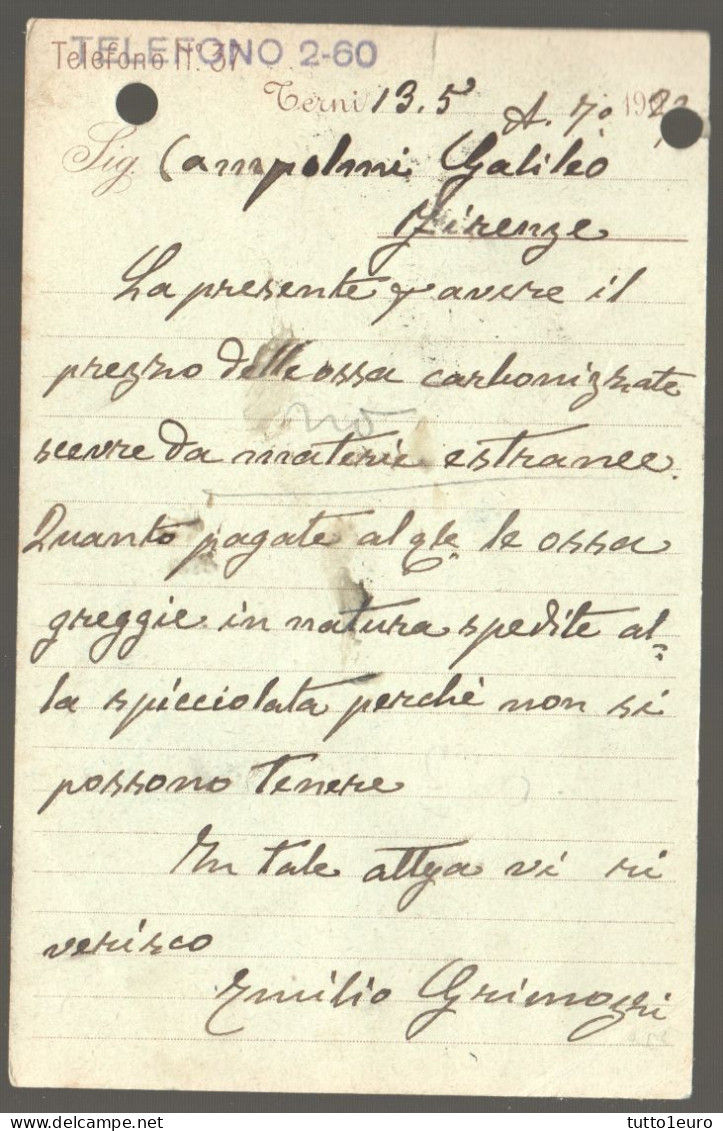 TELEFONO 2-60
Telefono N° 37
Terni 13.5 A. 7° 192
Sig. Campolmi Galileo
Firenze
La presente p avere il
prezzo delle ossa carbonizzate
no
scevre da materie estranee.
Quanto pagate al qle le ossa
greggie in natura spedite al=
la spicciolata perchè non si
possono tenere
In tale attesa vi ri
verisco
Emilio Grimozzi
tutto1euro